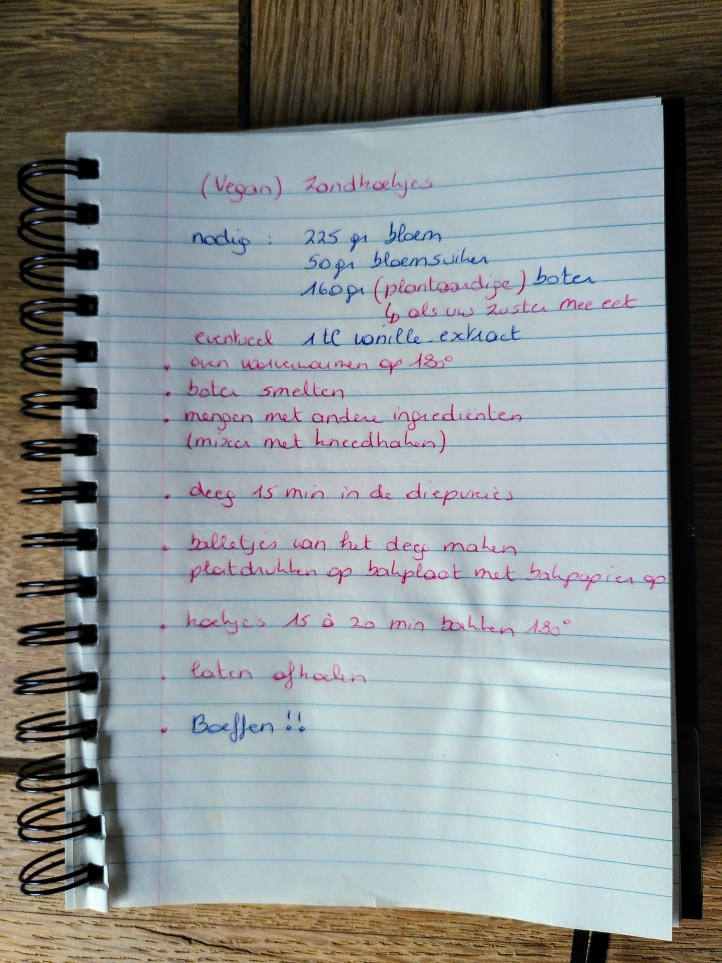 (Vegan) Zandkoekjes
nodig : 225 gr bloem
50 gr bloemsuiker
160 gr (plantaardige) boter
↳ als uw zuster mee eet
eventueel 1 tl vanille-extract
• oven voorverwarmen op 180°
• boter smelten
• mengen met andere ingrediënten
(mixer met kneedhaken)
• deeg 15 min in de diepvries
• balletjes van het deeg maken
platdrukken op bakplaat met bakpapier op
• koekjes 15 à 20 min bakken 180°
• laten afkoelen
• Boeffen !!